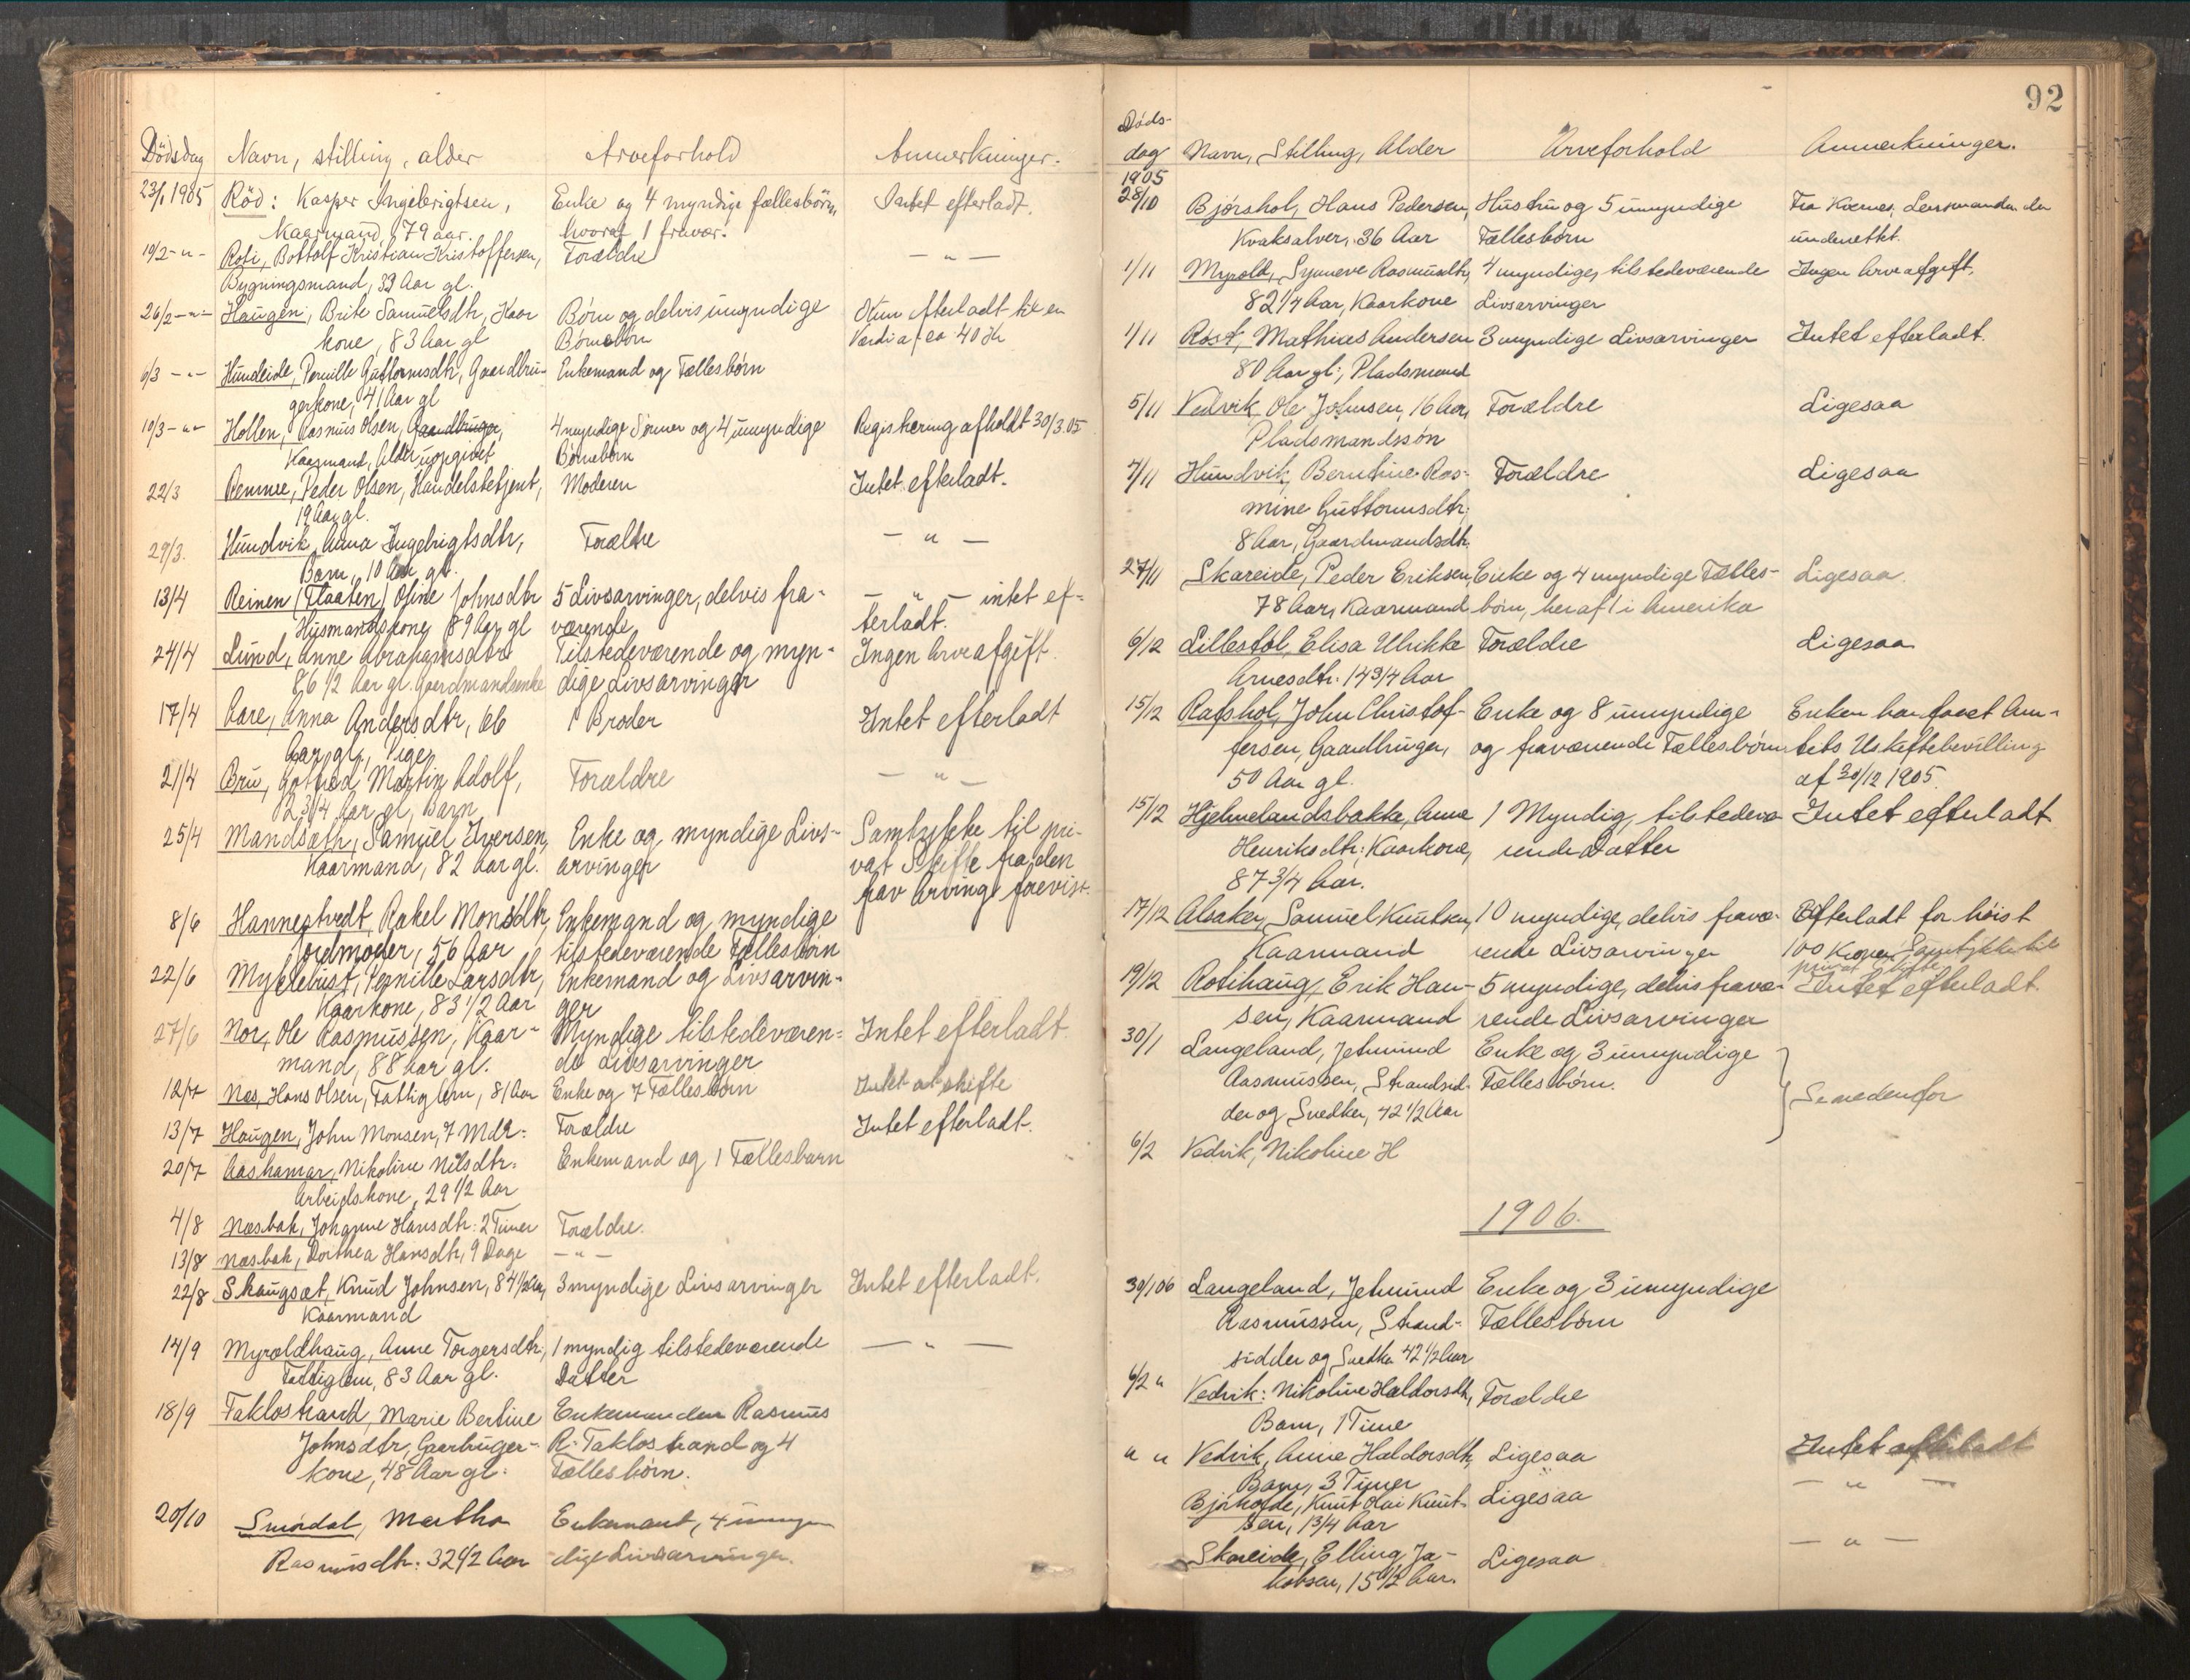 Dödsdag Navn, stilling, alder Arveforhold Anmerkninger.
23/1 1905 Röd: Kasper Ingebrigtsen, Enke og 4 myndige fællesbörn, Intet efterladt.
Kaarmand, 79 aar. hvoraf 1 fravær.
19/2 -"- Roti, Bottolf Kristian Kristoffersen, Forældre - " -
Bygningsmand, 32 Aar gl.
26/2 -"- Haugen, Brite Samuelsdtr, Kaar Børn og delvis umyndige Kun efterladt til en
kone, 83 Aar gl Børnebørn Værdi af ca 40 Kr
6/3 -"- Hundeide, Pernille Guttormsdtr, Gaardbru- Enkemand og Fællesbørn
gerkone, 41 Aar gl
10/3 -"- Hollen, Rasmus Olsen, Gaardbruger, 4 myndige Sønner og 4 umyndige Registrering afholdt 30/3.05
Kaarmand, Alder uopgivet Børnebørn
22/3 Remme, Peder Olsen, Handelsbetjent, Moderen Intet efterladt.
19 Aar gl.
29/3. Hundvik, Anna Ingebrigtsdtr, Forældre - " -
Barn, 10 Aar gl.
13/4 Reinen (Flaaten) Oline Johnsdtr 5 Livsarvinger, delvis fra- - " - intet ef-
Husmandskone, 89 Aar gl værende terladt.
24/4 Lund, Anne Abrahamsdtr Tilstedeværende og myn- Ingen Arveafgift.
86 1/2 Aar gl. Gaardmandsenke dige Livsarvinger
17/4 Aare, Anna Andersdtr, 66 1 Broder Intet efterladt
Aar gl, Pige
21/4 Bru, Gotfred Martin Adolf, Forældre - " -
2 3/4 Aar gl, Barn
25/4 Mandsæth, Samuel Iversen, Enke og myndige Livs- Samtykke til pri-
Kaarmand, 82 aar gl. arvinger vat Skifte fra den
frav Arving forevist.
8/6 Hannestvedt, Rakel Monsdtr, Enkemand og myndige
Jordmoder, 56 Aar tilstedeværende Fællesbörn
22/6 Myklebust, Pernille Larsdtr, Enkemand og Livsarvin-
Kaarkone, 83 1/2 Aar ger
27/6 Nor, Ole Rasmussen, Kaar- Myndige tilstedeværen- Intet efterladt.
mand, 88 aar gl. de Livsarvinger
12/7 Nes, Hans Olsen, Fattiglem, 81 Aar Enke og 7 Fællesbörn Intet at skifte
13/7 Haugen, John Monsen, 7 Mdr: Forældre Intet efterladt.
20/7 Aashamar, Nikoline Nilsdtr: Enkemand og 1 Fællesbarn
Arbeidskone, 29 1/2 Aar
4/8 Næsbak, Johanne Hansdtr: 2 Timer Forældre.
13/8 Næsbak, Dorthea Hansdtr, 9 Dage - " -
22/8 Skaugsæt, Knud Johnsen, 84 1/2 Aar, 3 myndige Livsarvinger Intet efterladt.
Kaarmand
14/9 Myroldhaug, Anne Torgersdtr, 1 myndig tilstedeværende - " -
Fattiglem, 83 Aar gl. Datter
18/9 Taklostrand, Marie Bertine Enkemanden Rasmus
Johnsdtr, Gaarbruger- R: Taklostrand og 4
kone, 48 Aar gl: Fællesbörn.
20/10 Smördal, Martha Enkemand, 4 umyn
Rasmusdtr: 32 1/2 Aar dige Livsarvinger.
92
Døds-
dag Navn, Stilling, Alder Arveforhold Anmerkninger.
1905
28/10 Bjørshol, Hans Pedersen, Hustru og 5 umyndige Fra Lensmanden
Kvaksalver, 36 Aar Fællesbørn underrettet.
1/11 Myrold, Synneve Rasmusdtr, 4 myndige, tilstedeværende Ingen Arveafgift.
82 1/4 Aar, Kaarkone Livsarvinger
1/11 Røst, Mathias Andersen 3 myndige Livsarvinger Intet efterladt.
80 Aar gl:, Pladsmand
5/11 Vedvik, Ole Johnsen, 16 Aar, Forældre Ligesaa
Pladsmandssön
7/11 Hundvik, Berntine Ras- Forældre Ligesaa
mine Guttormsdtr;
8 Aar, Gaardmandsdtr.
27/11 Skareide, Peder Eriksen, Enke og 4 myndige Fælles- Ligesaa.
78 Aar, Kaarmand børn, heraf 1 i Amerika
6/12 Lillestøl, Elisa Ulrikke Forældre Ligesaa
Arnesdtr: 14 3/4 Aar
15/12 Rafshol, John Christof- Enke og 8 umyndige Enken har faaet Am-
fersen, Gaardbruger, og fraværende Fællesbörn tets Uskiftebevilling
50 Aar gl. af 30/12 1905.
15/12 Hjelmelandsbakke, Anne 1 Myndig, tilstedevæ Intet efterladt
Henriksdtr: Kaarkone, rende Datter
87 3/4 Aar.
17/12 Alsaker, Samuel Knutsen, 10 myndige, delvis fravæ- Efterladt for höist
Kaarmand rende Livsarvinger 100 Kroner. Samtykke til
privat Skifte
19/12 Rotihaug, Erik Han- 5 myndige, delvis fravæ- Intet efterladt.
sen, Kaarmand rende Livsarvinger
30/1 Langeland, Jetmund Enke og 3 umyndige
Rasmussen, Strandsid- Fællesbörn. Se nedenfor
der og Snedker, 42 1/2 Aar
6/2 Vedvik, Nikoline H
1906.
30/1 06 Langeland, Jetmund Enke og 3 umyndige
Rasmussen, Strand- Fællesbörn
sidder og Snedker 42 1/2 Aar
6/2 " Vedvik: Nikoline Haldorsdtr, Forældre
Barn, 1 Time
" " Vedvik, Anne Haldorsdtr, Ligesaa Intet efterladt
Barn, 3 Timer - " -
Bjørhovde, Knut Olai Knut- Ligesaa
sen, 1 3/4 Aar
Skareide, Elling Ja- Ligesaa - " -
kobsen, 15 1/2 Aar.